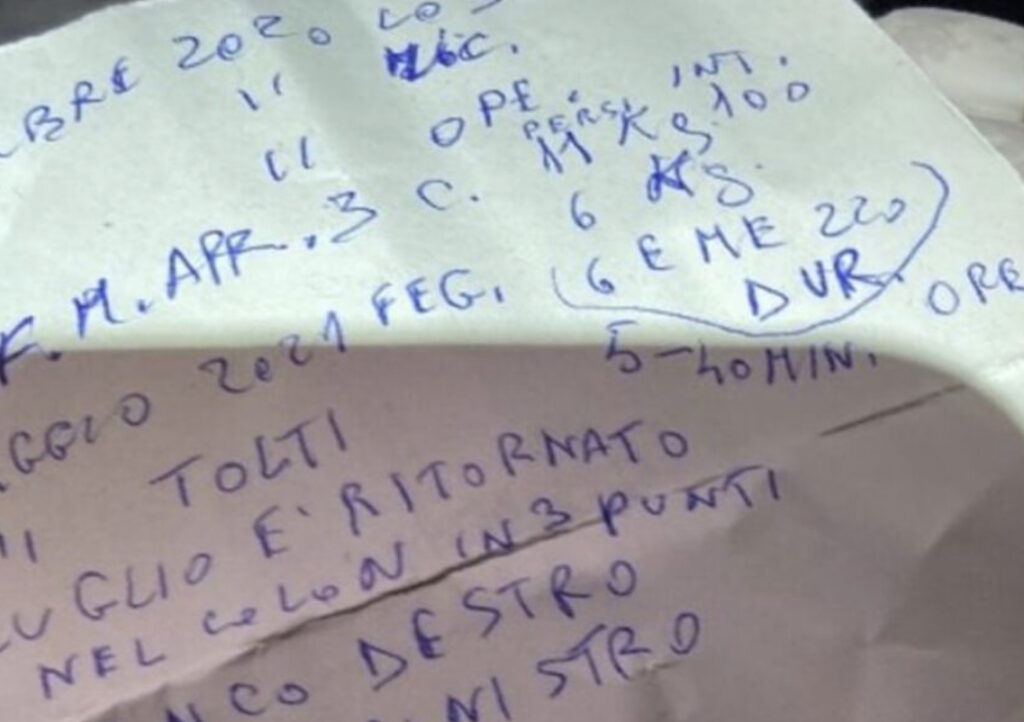 BRE 2020 CO
" MIC.
" OPE. INT.
PERSI 11 KG 100
F.M. APR. 3 C. 6 KG.
(6 EME 220)
MAGGIO 2021 FEG. DUR. ORE
5-40 MIN.
" TOLTI
LUGLIO E' RITORNATO
NEL COLON IN 3 PUNTI
NCO DESTRO
NISTRO